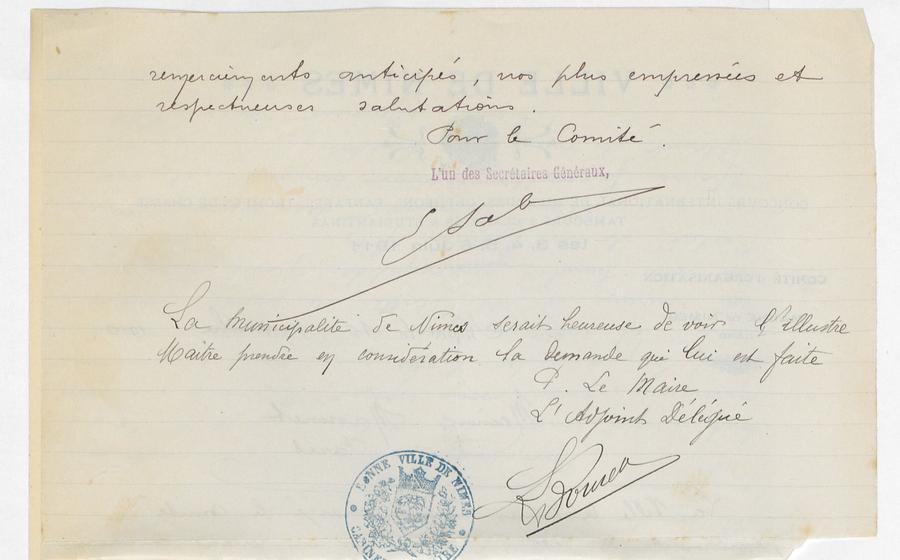 remerciements anticipés, nos plus empressées et
respectueuses salutations.
Pour le Comité.
L'un des Secrétaires Généraux,
La municipalité de Nîmes serait heureuse de voir l'illustre
Maitre prendre en considération la demande qui lui est faite
P. Le Maire
L'Adjoint Délégué
BONNE VILLE DE NIMES